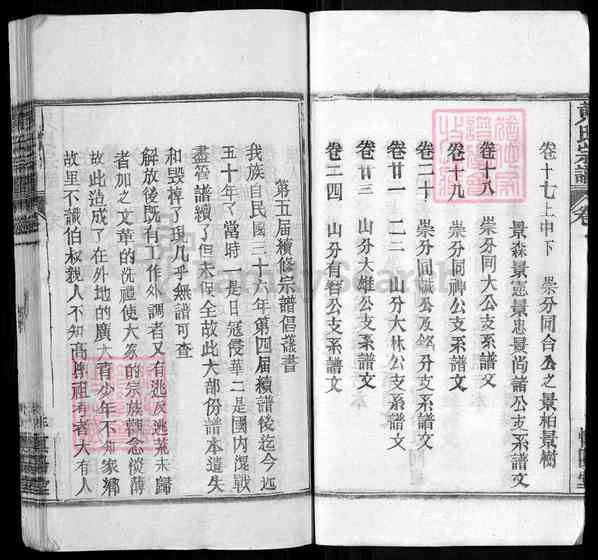 卷十七上中下　崇分同合公之景柏景樹
景森景憲景忠景尚諸公支系譜文
卷十八　崇分同大公支系譜文
卷十九　崇分同神公支系譜文
卷二十　崇分同誠公及銘分支系譜文
卷廿一　二二　山分大林公支系譜文
卷廿三　山分大雄公支系譜文
卷二四　山分有智公支系譜文
第五屆續修宗譜倡議書
我族自民國三十六年第四屆續譜後迄今近
五十年了當時一是日冦侵華二是國內混戰
盡管譜續了但未保全故此大部份譜本遺失
和毀掉了現几乎無譜可查
解放後既有工作外調者又有逃反逃荒未歸
者加之文革的洗禮使大家的宗族觀念從薄
故此造成了在外地的廣大青少年不知家鄉
故里不識伯叔親人不知高曾祖考者大有人